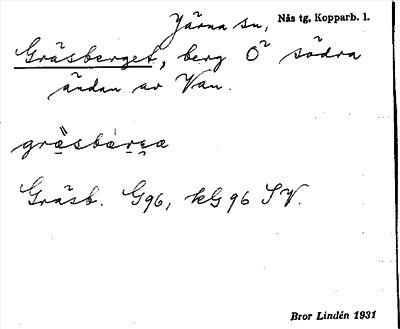 Järna sn, Nås tg, Kopparb. l.
Gräsberget, berg Ö södra
ändan av Van.
gräsbärɛa
Gräsb. G96, kG 96 SV.
Bror Lindén 1931